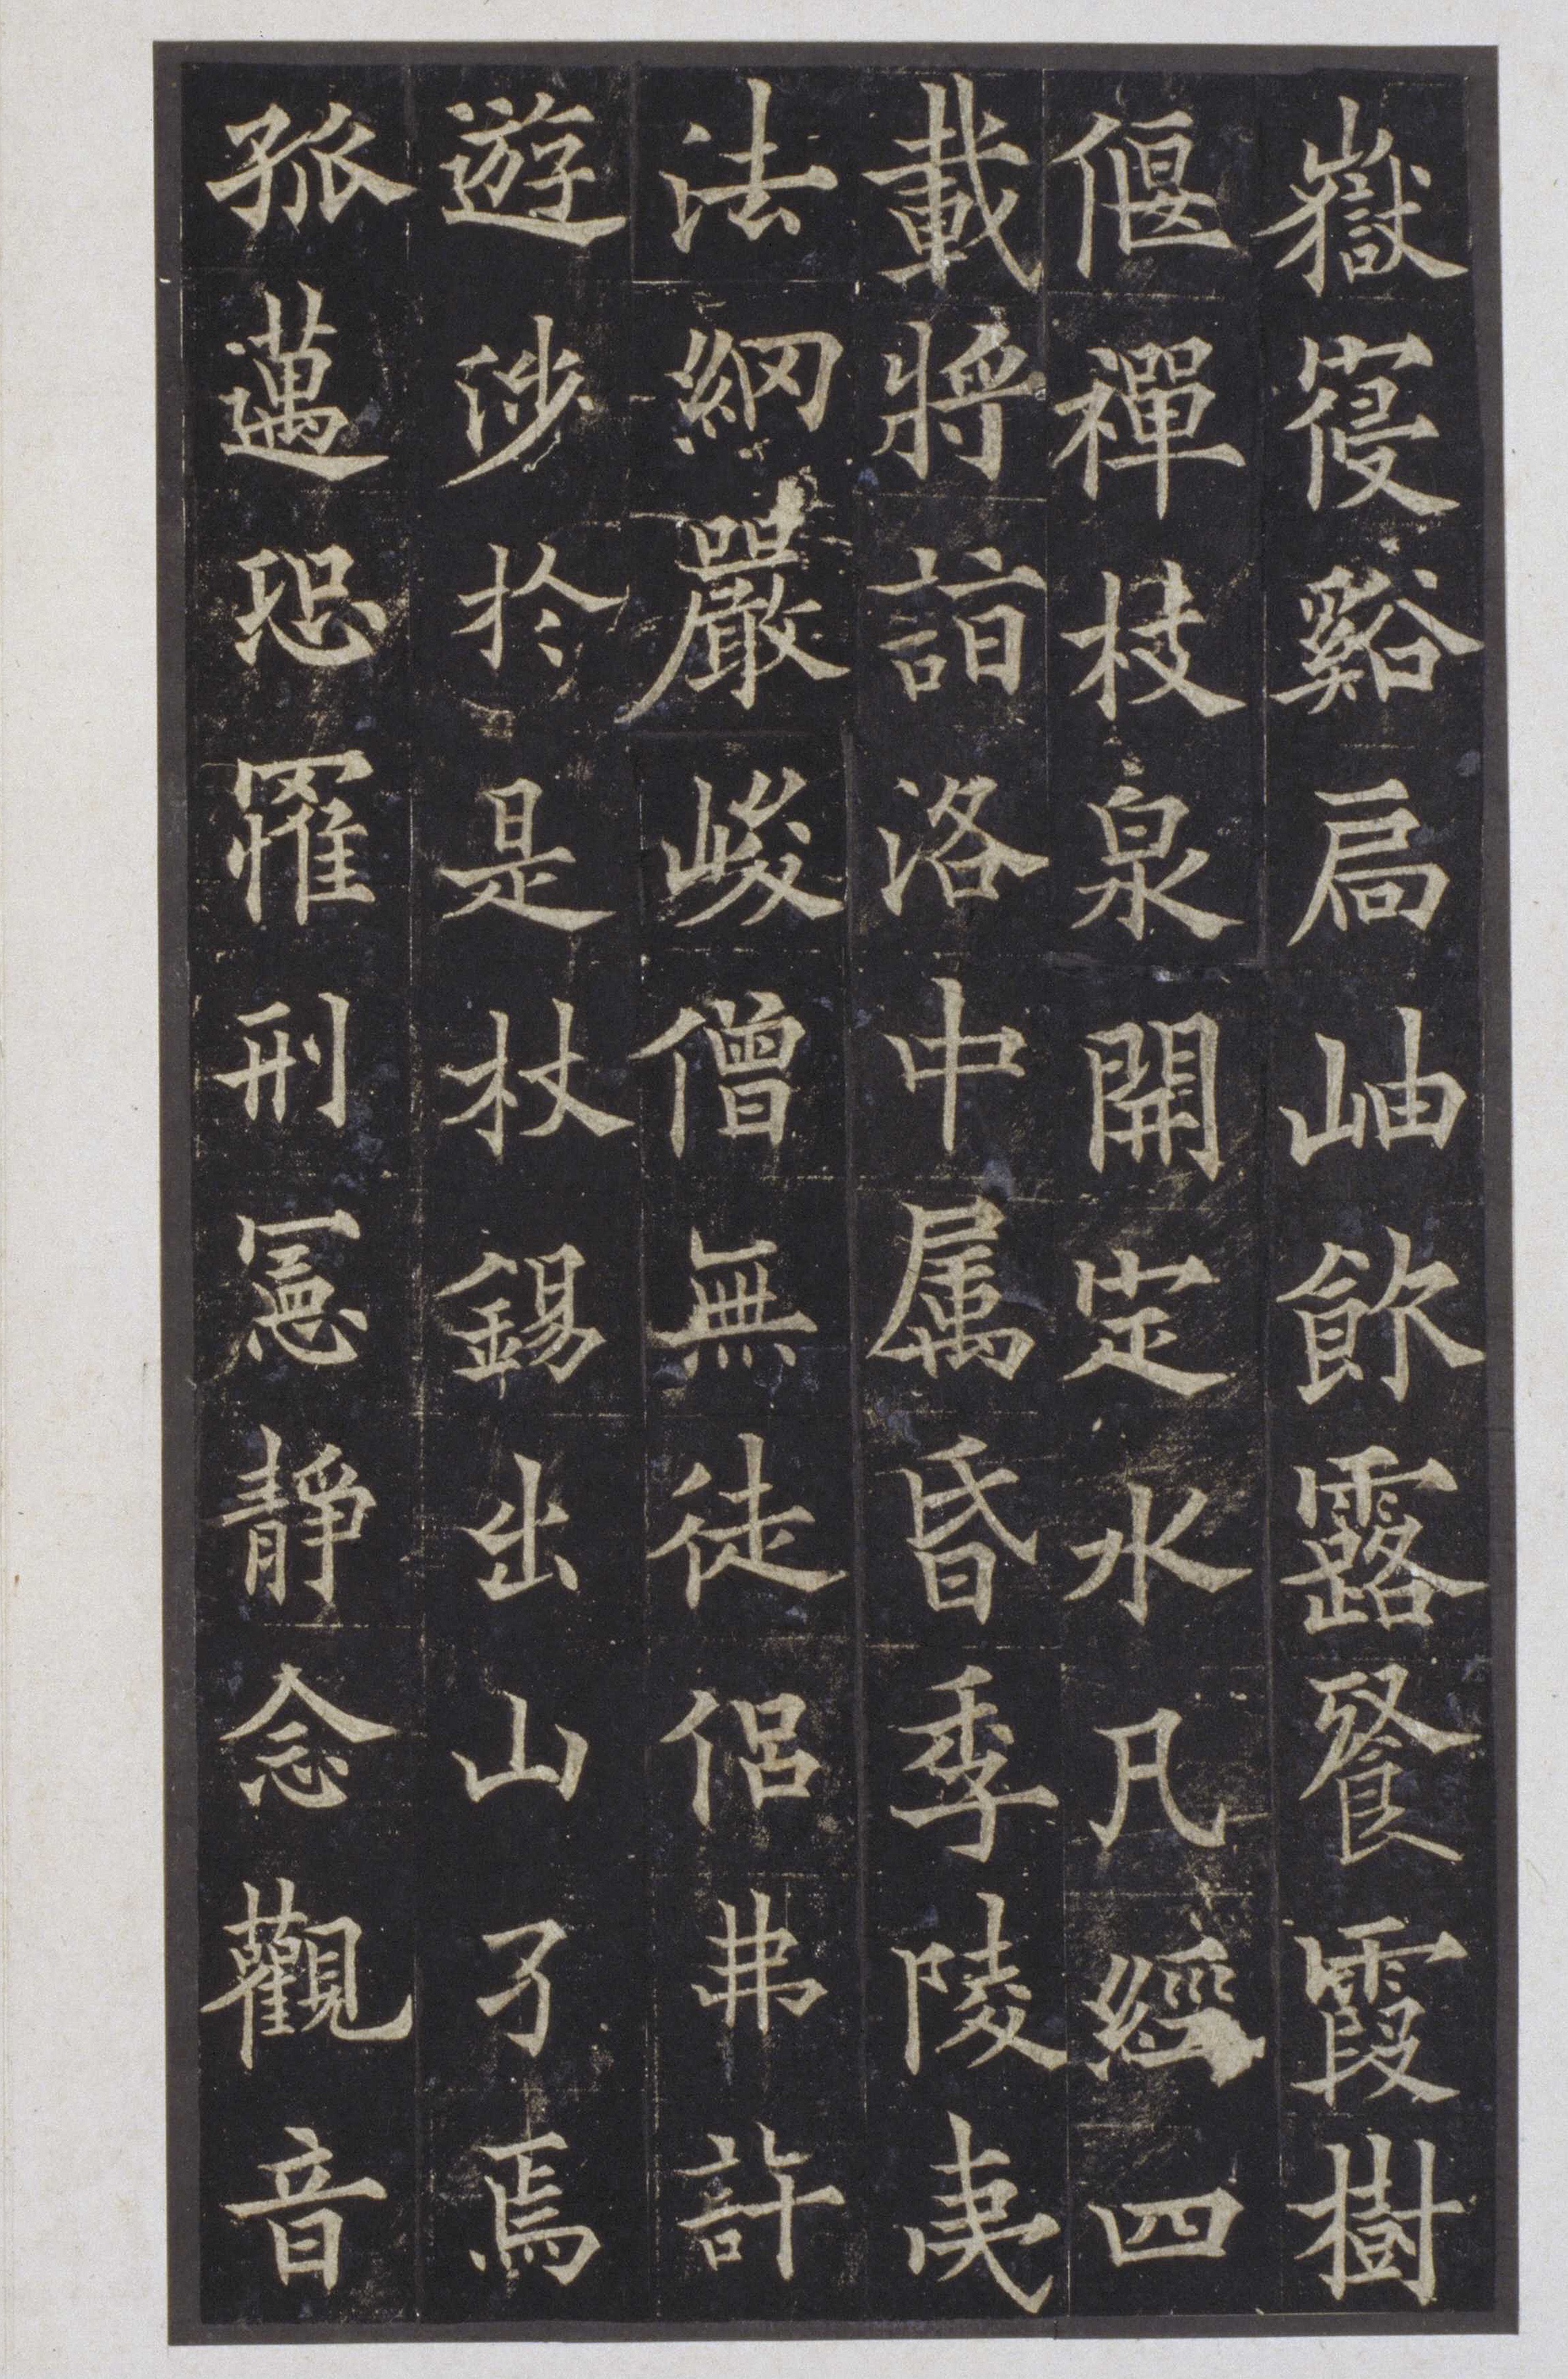 嶽寑谿扃岫飲露餐霞樹
偃禪枝泉開定水凡經四
載將詣洛中属昏季陵夷
法網嚴峻僧無徒侶弗許
遊涉於是杖錫出山孑焉
孤邁恐罹刑憲靜念觀音